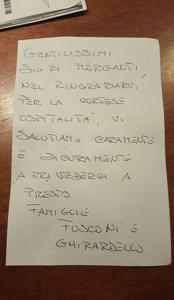 GENTILISSIMI
SIG.RI MORGANTI,
NEL RINGRAZIARVI,
PER LA CORTESE
OSPITALITA', VI
SALUTIAMO CARAMENTE
E SICURAMENTE
ARRIVEDERCI A
PRESTO
FAMIGLIE
FUSCONI E
GHIRARDELLO